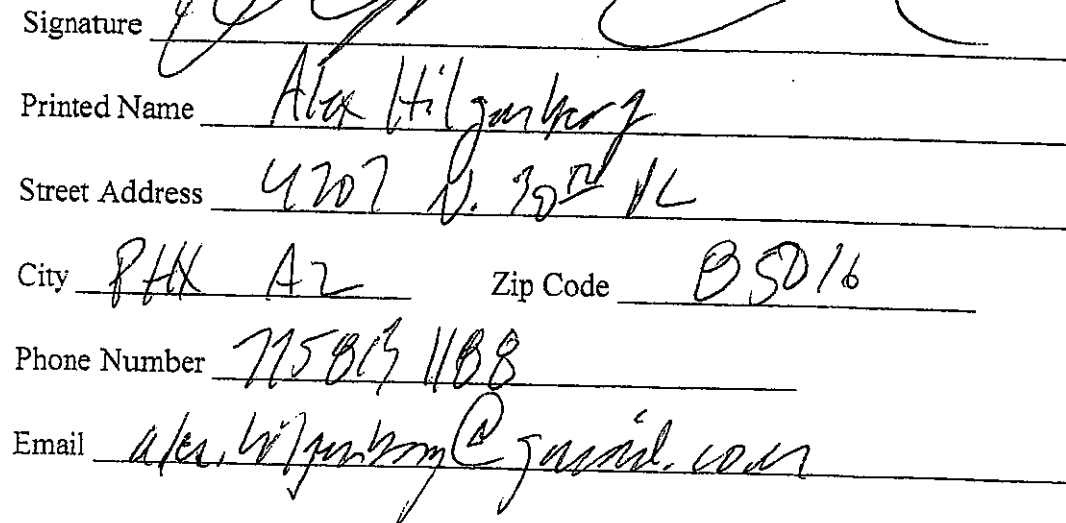 Signature
Printed Name Alex Hilgenberg
Street Address 4202 N. 30th PL
City PHX AZ Zip Code 85016
Phone Number 715 1188
Email alex.hilgenberg@gmail.com